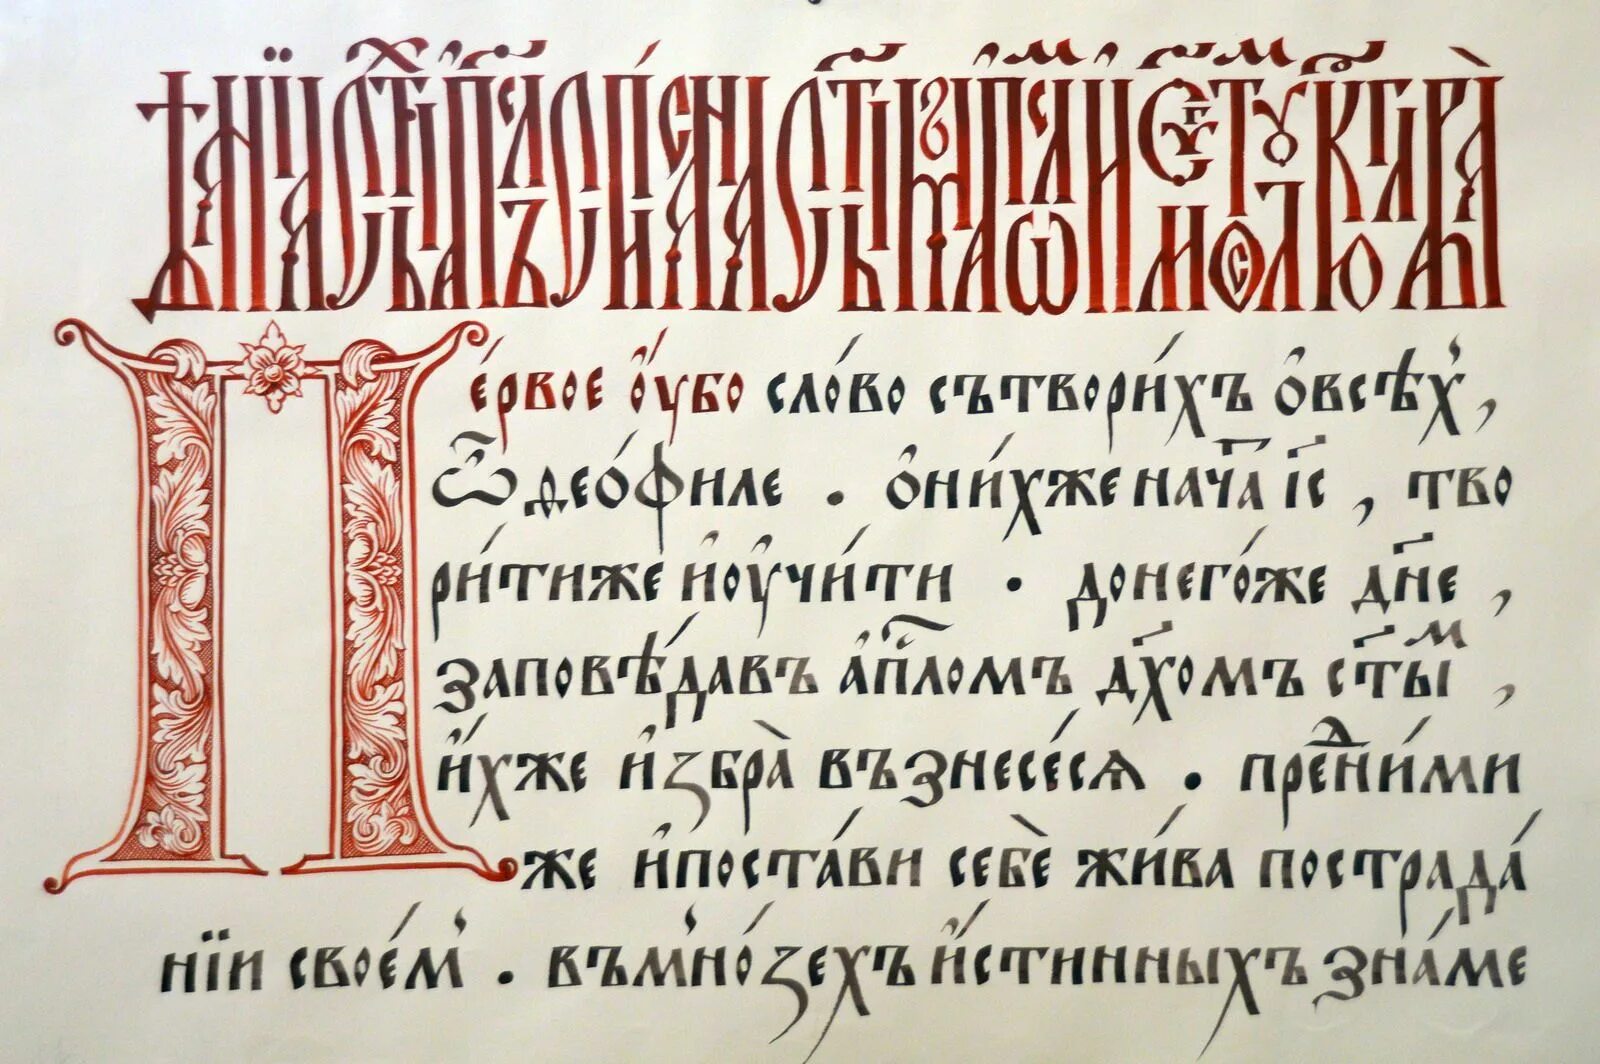 дꙗнїꙗ ст҃ых апⷭ҇лъ списанїꙗ ст҃ымъ апⷭ҇лѡм и еѵⷢ҇листом лꙋкою
Пе́рвое оу҆́бо сло́во сътвори́хъ о҆всѣх̾,
ѽ ѳео́филе . о҆ни́хже нача́ⷮ і҃с , тво
ри́тиже и҆оу҆чи́ти . донего́же дн҃е ,
заповѣ́давъ а҆п҃ломъ дх҃омъ ст҃ыⷨ ,
и҆́хже и҆збра̀ възнесе́сѧ . преⷣни́ми
же и҆поста́ви себѐ жи́ва пострада́
нїи свое́м̾ . въмно́зехъ и҆́стинныхъ зна́ме